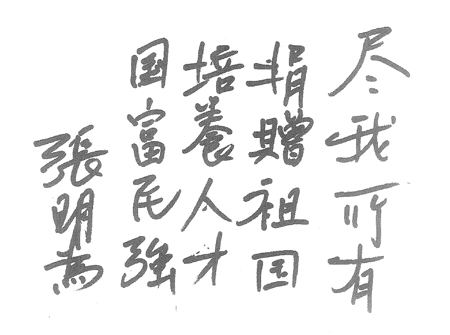 尽我所有
捐贈祖国
培養人才
国富民強
張明為